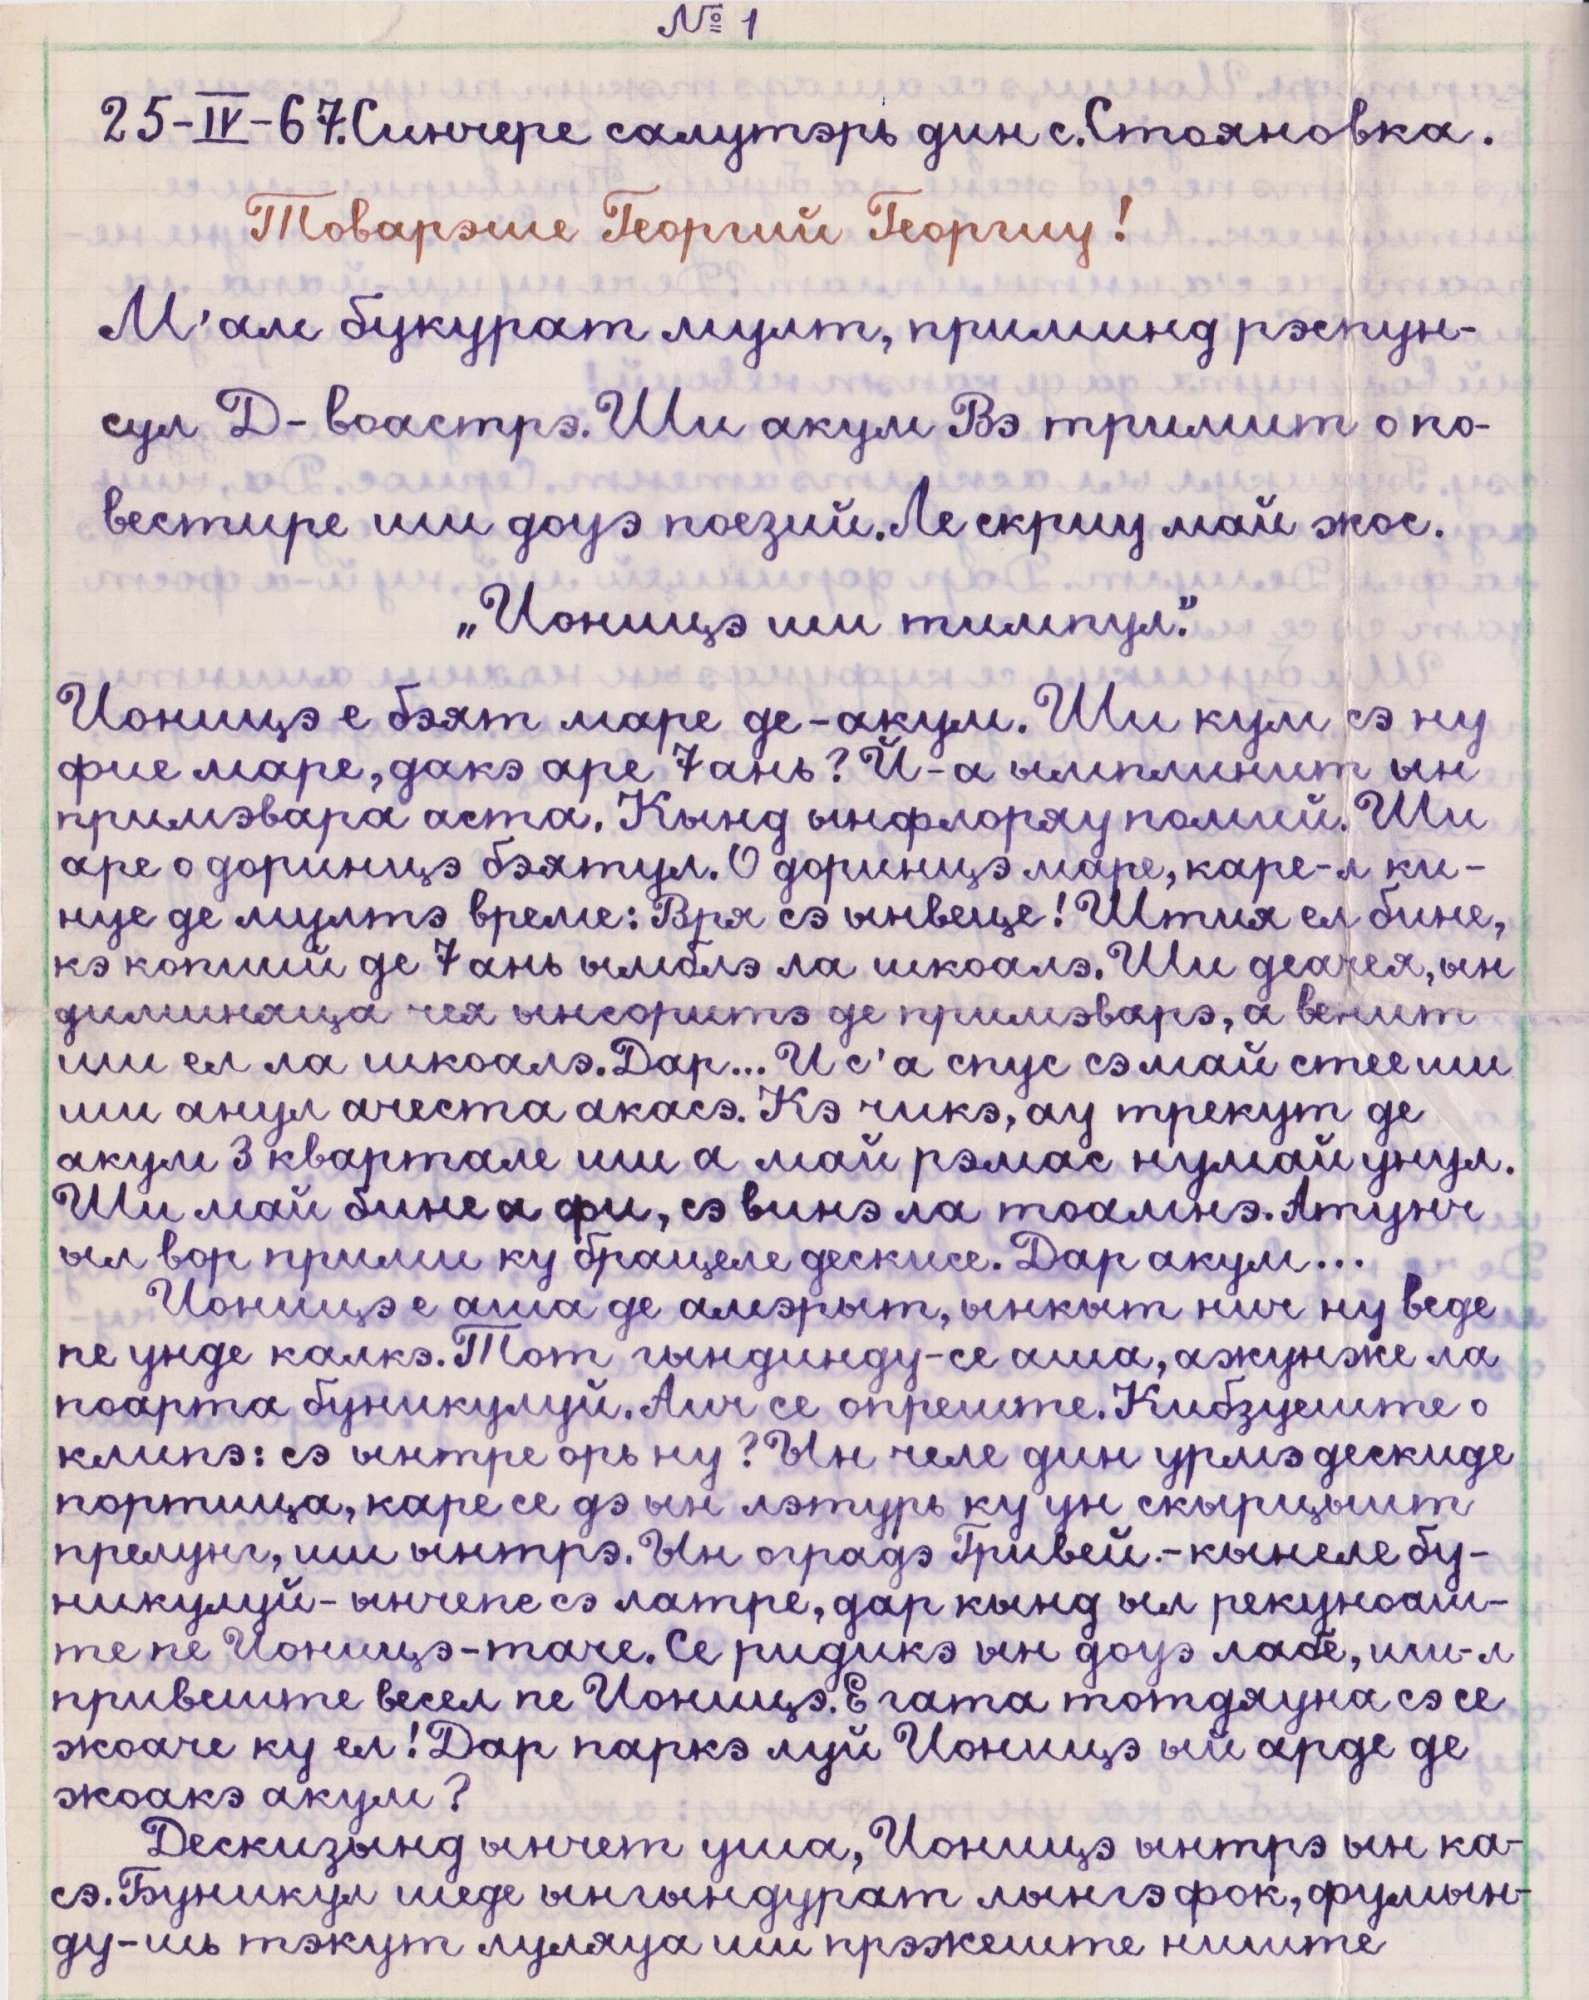 № 1
25-IV-67. Синчере салутэрь дин с. Стояновка.
Товарэше Георгий Георгиу!
М'ам букурат мулт, приминд рэспун-
сул Д-воастрэ. Ши акум Вэ тримит о по-
вестире ши доуэ поезий. Ле скриу май жос.
„Ионицэ ши тимпул."
Ионицэ е бэят маре де-акум. Ши кум сэ ну
фие маре, дакэ аре 7 ань? Й-а ымплинит ын
примэвара аста. Кынд ынфлоряу помий. Ши
аре о доринцэ бэятул. О доринцэ маре, каре-л ки-
нуе де мултэ време: Вря сэ ынвеце! Штия ел бине,
кэ копиий де 7 ань ымблэ ла школэ. Ши деачея, ын
диминяца чея ынсоритэ де примэварэ, а венит
ши ел ла шкоалэ. Дар... И с'а спус сэ май стее ши
ши анул ачеста акасэ. Кэ чикэ, ау трекут де
акум 3 квартале ши а май рэмас нумай унул.
Ши май бине а фи, сэ винэ ла тоамнэ. Атунч
ыл вор прими ку брацеле дескисе. Дар акум...
Ионицэ е аша де амэрыт, ынкыт нич ну веде
пе унде калкэ. Тот гындинду-се аша, ажунже ла
поарта буникулуй. Аич се опреште. Кибзуеште о
клипэ: сэ ынтре орь ну? Ын челе дин урмэ дескиде
портица, каре се дэ ын лэтурь ку ун скырцыит
прелунг, ши ынтрэ. Ын оградэ Гривей - кынеле бу-
никулуй - ынчепе сэ латре, дар кынд ыл рекуноаш-
те пе Ионицэ - таче. Се ридикэ ын доуэ лабе, ши-л
привеште весел пе Ионицэ. Е гата тотдяуна сэ се
жоаче ку ел! Дар паркэ луй Ионицэ ый арде де
жоакэ акум?
Дескизынд ынчет уша, Ионицэ ынтрэ ын ка-
сэ. Буникул шеде ынгындурат лынгэ фок, фумын-
ду-шь тэкут луляуа ши прэжеште ниште